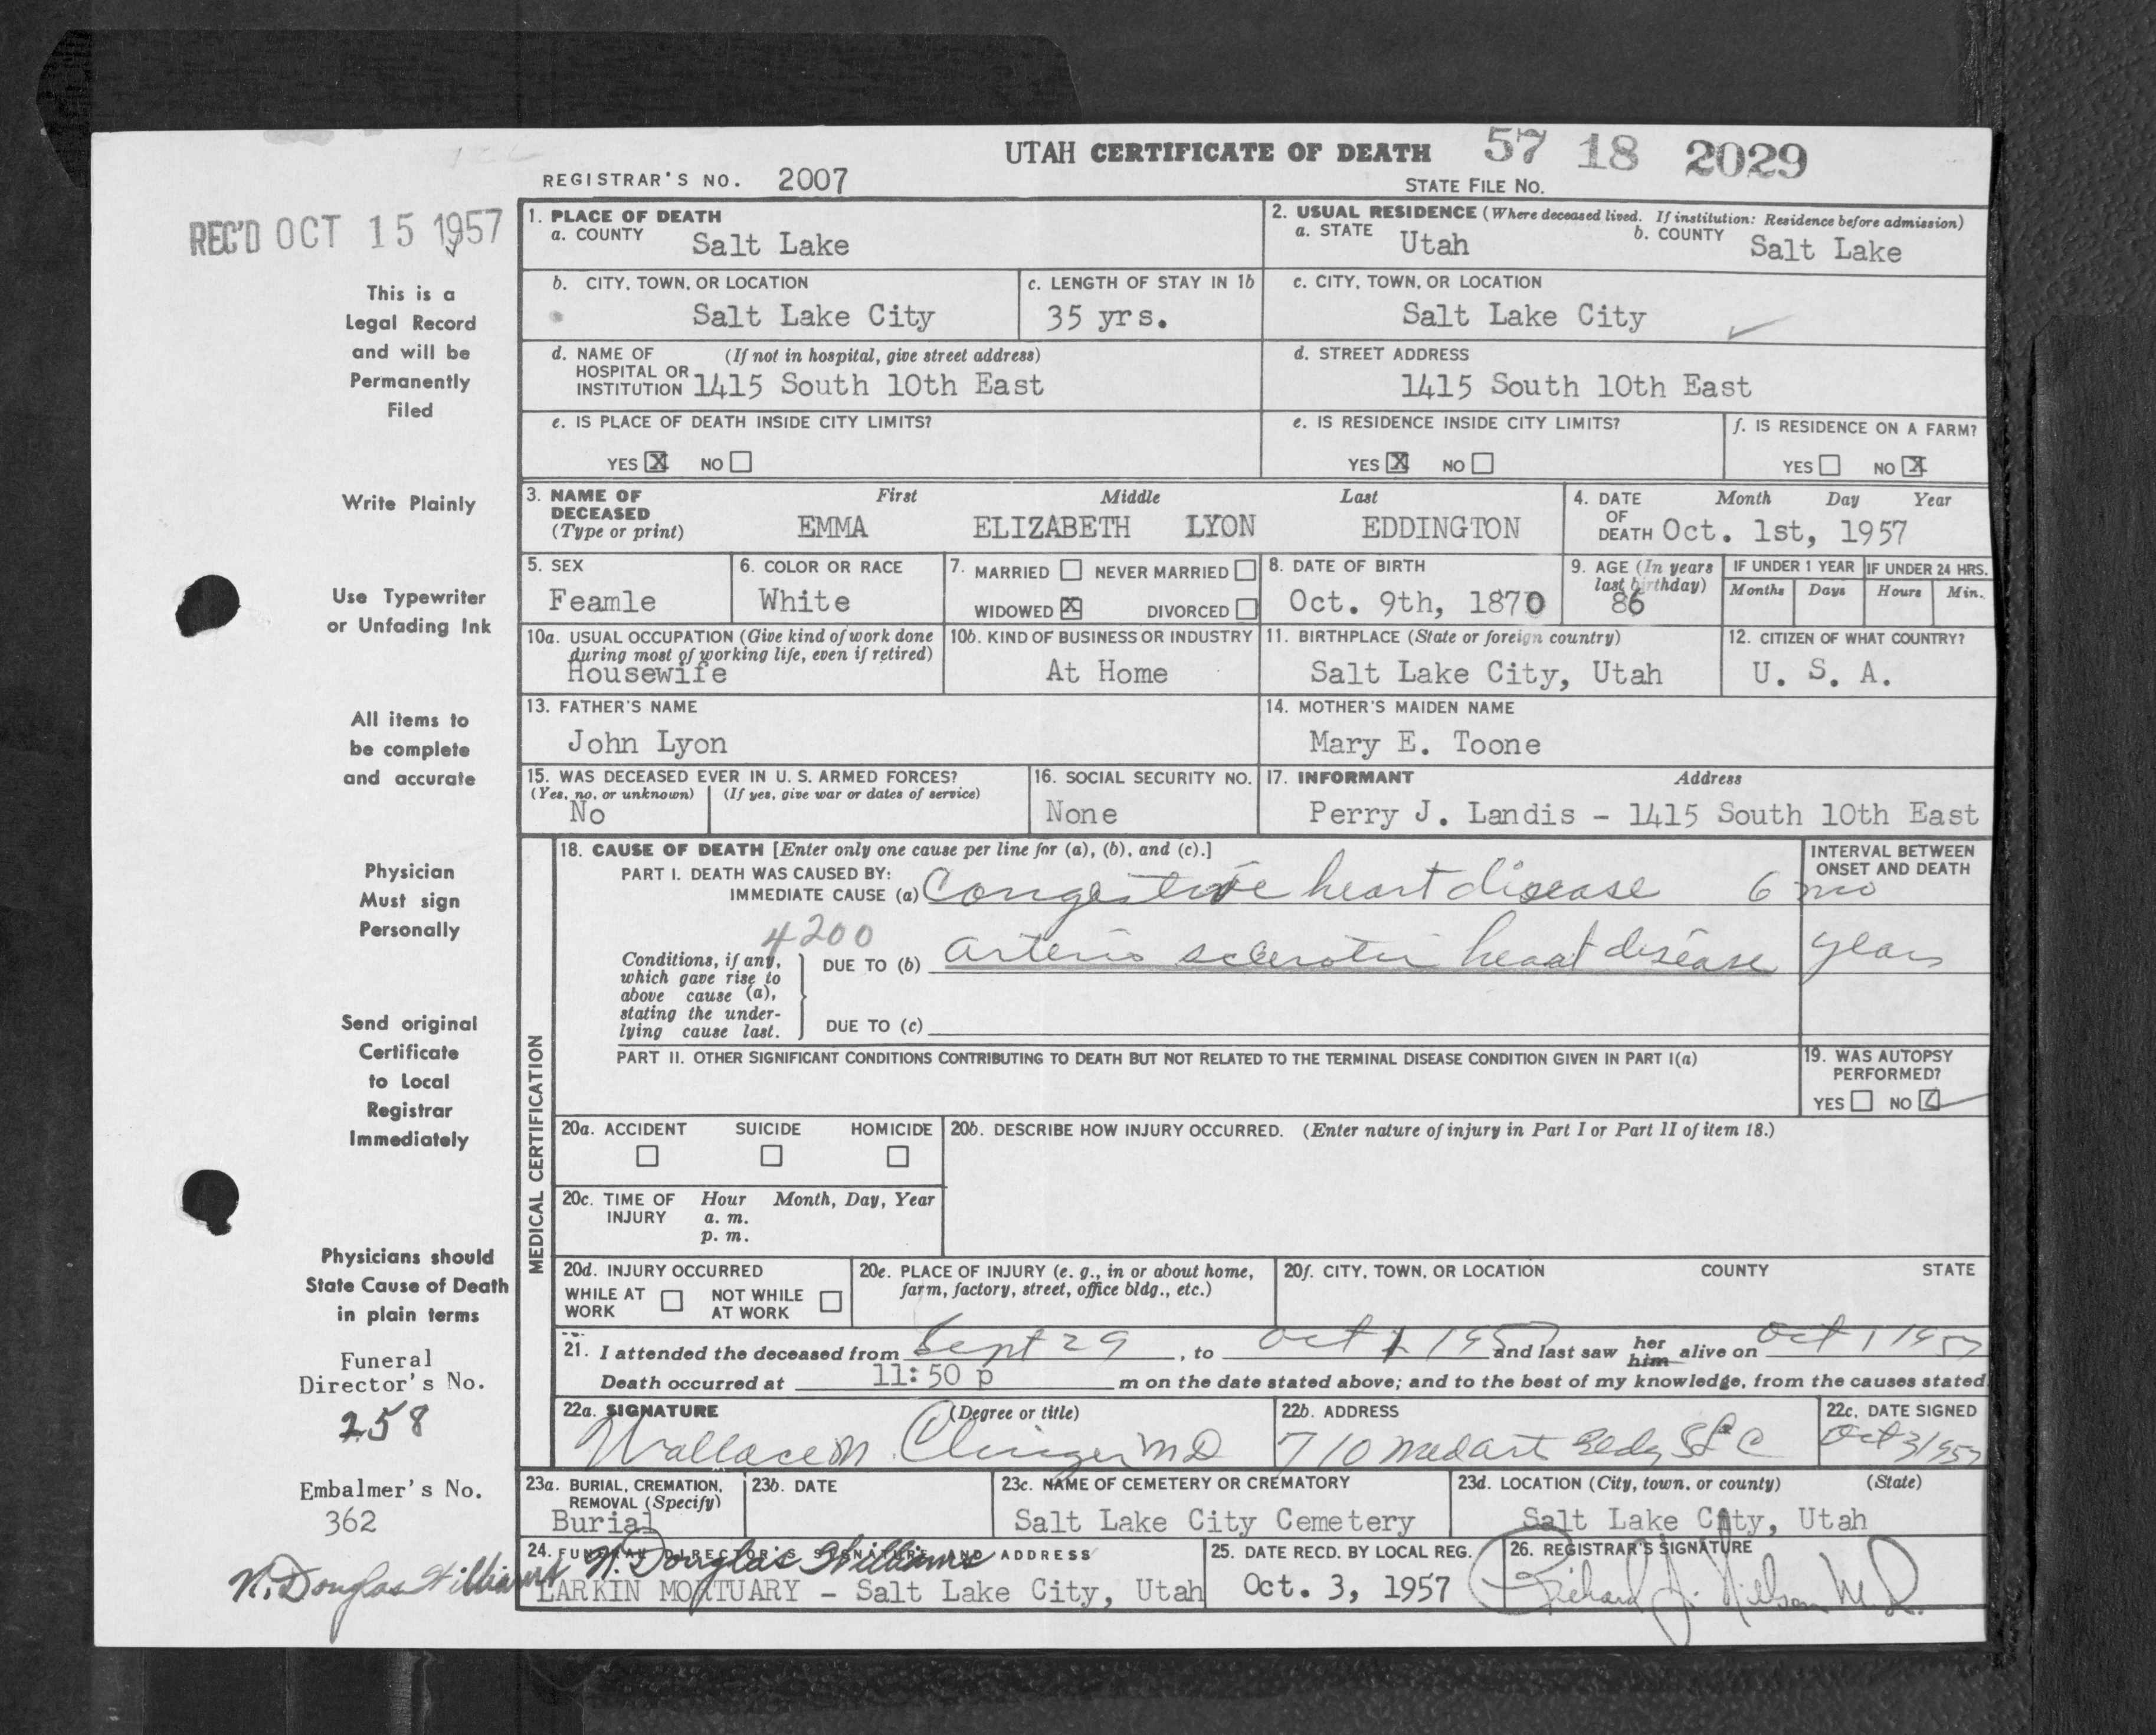 UTAH CERTIFICATE OF DEATH 57 18 2029
REGISTRAR'S NO. 2007
STATE FILE NO.
REC'D OCT 15 1957
This is a
Legal Record
and will be
Permanently
Filed
Write Plainly
Use Typewriter
or Unfading Ink
All items to
be complete
and accurate
Physician
Must sign
Personally
Send original
Certificate
to Local
Registrar
Immediately
Physicians should
State Cause of Death
in plain terms
Funeral
Director's No.
258
Embalmer's No.
362
N. Douglas Williams
1. PLACE OF DEATH
a. COUNTY Salt Lake
2. USUAL RESIDENCE (Where deceased lived. If institution: Residence before admission)
a. STATE Utah b. COUNTY Salt Lake
b. CITY, TOWN, OR LOCATION
Salt Lake City
c. LENGTH OF STAY IN 1b
35 yrs.
c. CITY, TOWN, OR LOCATION
Salt Lake City
d. NAME OF (If not in hospital, give street address)
HOSPITAL OR
INSTITUTION 1415 South 10th East
d. STREET ADDRESS
1415 South 10th East
e. IS PLACE OF DEATH INSIDE CITY LIMITS?
YES X NO
e. IS RESIDENCE INSIDE CITY LIMITS?
YES X NO
f. IS RESIDENCE ON A FARM?
YES NO X
3. NAME OF First Middle Last
DECEASED
(Type or print) EMMA ELIZABETH LYON EDDINGTON
4. DATE Month Day Year
OF
DEATH Oct. 1st, 1957
5. SEX
Feamle
6. COLOR OR RACE
White
7. MARRIED NEVER MARRIED
WIDOWED X DIVORCED
8. DATE OF BIRTH
Oct. 9th, 1870
9. AGE (In years
last birthday)
86
IF UNDER 1 YEAR
Months Days
IF UNDER 24 HRS.
Hours Min.
10a. USUAL OCCUPATION (Give kind of work done
during most of working life, even if retired)
Housewife
10b. KIND OF BUSINESS OR INDUSTRY
At Home
11. BIRTHPLACE (State or foreign country)
Salt Lake City, Utah
12. CITIZEN OF WHAT COUNTRY?
U. S. A.
13. FATHER'S NAME
John Lyon
14. MOTHER'S MAIDEN NAME
Mary E. Toone
15. WAS DECEASED EVER IN U. S. ARMED FORCES?
(Yes, no, or unknown) (If yes, give war or dates of service)
No
16. SOCIAL SECURITY NO.
None
17. INFORMANT Address
Perry J. Landis - 1415 South 10th East
MEDICAL CERTIFICATION
18. CAUSE OF DEATH [Enter only one cause per line for (a), (b), and (c).]
INTERVAL BETWEEN
ONSET AND DEATH
PART I. DEATH WAS CAUSED BY:
IMMEDIATE CAUSE (a) Congestive heart disease 6 mo
4200
Conditions, if any,
which gave rise to
above cause (a),
stating the under-
lying cause last.
DUE TO (b) arterio sclerotic heart disease years
DUE TO (c)
PART II. OTHER SIGNIFICANT CONDITIONS CONTRIBUTING TO DEATH BUT NOT RELATED TO THE TERMINAL DISEASE CONDITION GIVEN IN PART I(a)
19. WAS AUTOPSY
PERFORMED?
YES NO ✓
20a. ACCIDENT SUICIDE HOMICIDE
20b. DESCRIBE HOW INJURY OCCURRED. (Enter nature of injury in Part I or Part II of item 18.)
20c. TIME OF Hour Month, Day, Year
INJURY a. m.
p. m.
20d. INJURY OCCURRED
WHILE AT NOT WHILE
WORK AT WORK
20e. PLACE OF INJURY (e. g., in or about home,
farm, factory, street, office bldg., etc.)
20f. CITY, TOWN, OR LOCATION COUNTY STATE
21. I attended the deceased from Sept 29, to Oct 1 1957 and last saw her him alive on Oct 1 1957
Death occurred at 11:50 p m on the date stated above; and to the best of my knowledge, from the causes stated
22a. SIGNATURE (Degree or title)
Wallace M. Clinger MD
22b. ADDRESS
710 Med Art Bldg SLC
22c. DATE SIGNED
Oct 3/1957
23a. BURIAL, CREMATION,
REMOVAL (Specify)
Burial
23b. DATE
23c. NAME OF CEMETERY OR CREMATORY
Salt Lake City Cemetery
23d. LOCATION (City, town, or county) (State)
Salt Lake City, Utah
24. FUNERAL DIRECTOR'S SIGNATURE AND ADDRESS
N. Douglas Williams
LARKIN MORTUARY - Salt Lake City, Utah
25. DATE RECD. BY LOCAL REG.
Oct. 3, 1957
26. REGISTRAR'S SIGNATURE
Richard J. Nilson M.D.